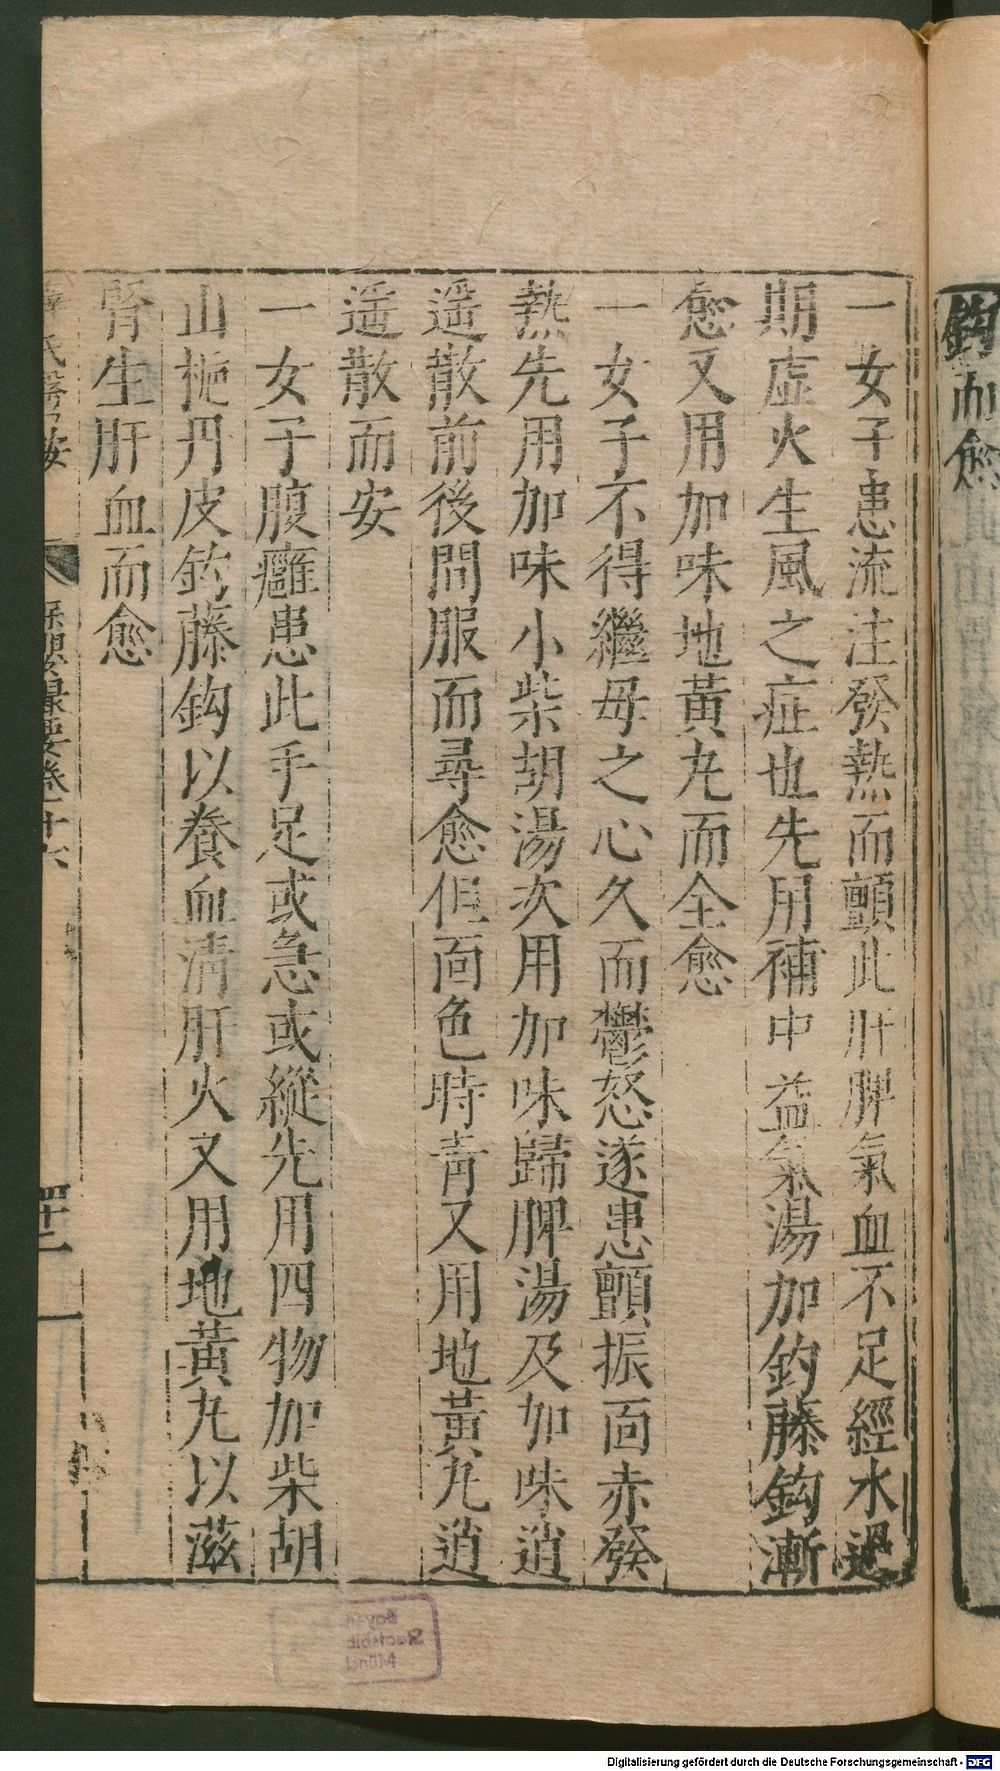 鈎而愈
一女子患流注發熱而顫此肝脾氣血不足經水過
期虛火生風之症也先用補中益氣湯加鈎藤鈎漸
愈又用加味地黃丸而全愈
一女子不得繼母之心久而鬱怒遂患顫振面赤發
熱先用加味小柴胡湯次用加味歸脾湯及加味逍
遥散前後間服而尋愈但面色時青又用地黃丸逍
遥散而安
一女子腹癰患此手足或急或縱先用四物加柴胡
山梔丹皮鈎藤鈎以養血清肝火又用地黃丸以滋
腎生肝血而愈
氏醫案 保嬰撮要卷十六 四十二
Digitalisierung gefördert durch die Deutsche Forschungsgemeinschaft - DFG